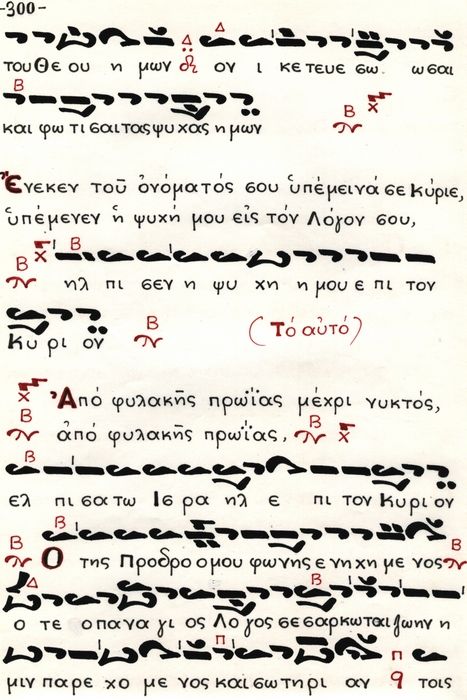 -300-
του Θε ου η μων ον ι κε τευε σω. ω σαι
και φω τι σαι τας ψυ χας η μων
Ἕνεκεν τοῦ ὀνόματός σου ὑπέμεινά σε Κύριε,
ὑπέμενεν ἡ ψυχή μου εἰς τόν Λόγον σου,
ηλ πι σεν η ψυ χη η μου ε πι τον
Κυ ρι ον (Τό αὐτό)
Ἀπό φυλακῆς πρωΐας μέχρι νυκτός,
ἀπό φυλακῆς πρωΐας,
ελ πι σα τω Ισ ρα ηλ ε πι τον Κυρι ον
Ο της Προδρο ομου φωνης ε νη χη με νος
ο τε ο πανα γι ος Λο γος σε σαρκωται ζωην η
μιν παρε χο με νος και σω τη ρι αν τοις